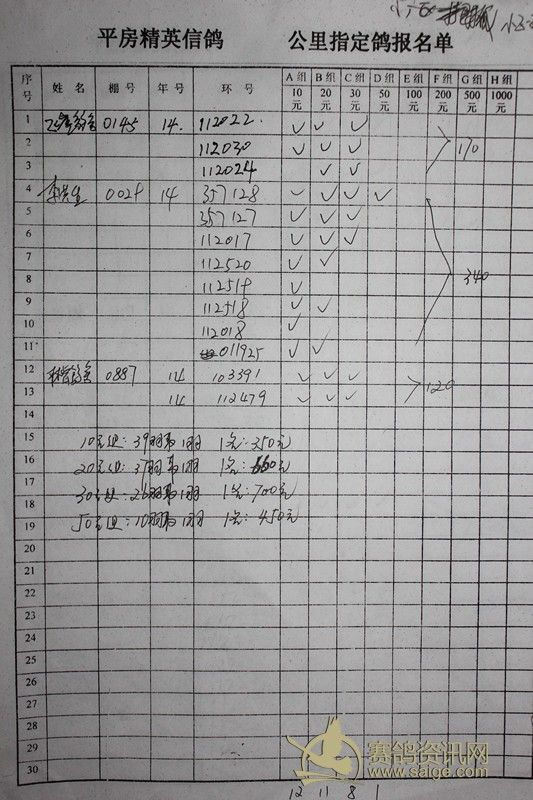 平房精英信鸽 公里指定鸽报名单
序号 姓名 棚号 年号 环号 A组 10元 B组 20元 C组 30元 D组 50元 E组 100元 F组 200元 G组 500元 H组 1000元
1 0145 14. 112022. ✓ ✓ ✓
2 112030 ✓ ✓ ✓ 170
3 112024 ✓ ✓
4 14 357128 ✓ ✓ ✓ ✓
5 357127 ✓ ✓ ✓
6 112017 ✓ ✓ ✓
7 112520 ✓ ✓
8 112519 ✓ 340
9 112518 ✓ ✓
10 112018 ✓
11 011925 ✓ ✓
12 0887 14 103391 ✓ ✓ ✓
13 14 112479 ✓ ✓ ✓ 120
14
15 10元组: 39羽 1羽 1名: 350元
16 20元组: 37羽 1羽 1名: 660元
17 30元组: 26羽 1羽 1名: 700元
18
19 50元组: 10羽 1羽 1名: 450元
20
21
22
23
24
25
26
27
28
29
30
赛鸽资讯网
www.saige.com
12 11 8 1